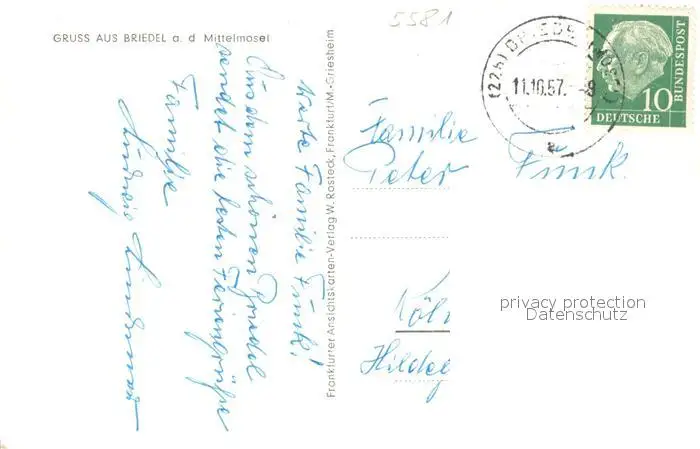 5581
GRUSS AUS BRIEDEL a. d. Mittelmosel
Werte Familie Funk!
Aus dem schönen Briedel
sendet die besten Feriengrüße
Familie
Ludwig
Frankfurter Ansichtskarten-Verlag W. Rosteck, Frankfurt/M.-Griesheim
(22b) BRIEDEL (MOSEL)
11.10.57. -8
a
10
DEUTSCHE
BUNDESPOST
Familie
Peter Funk.
Köln
Hildeg
privacy protection
Datenschutz